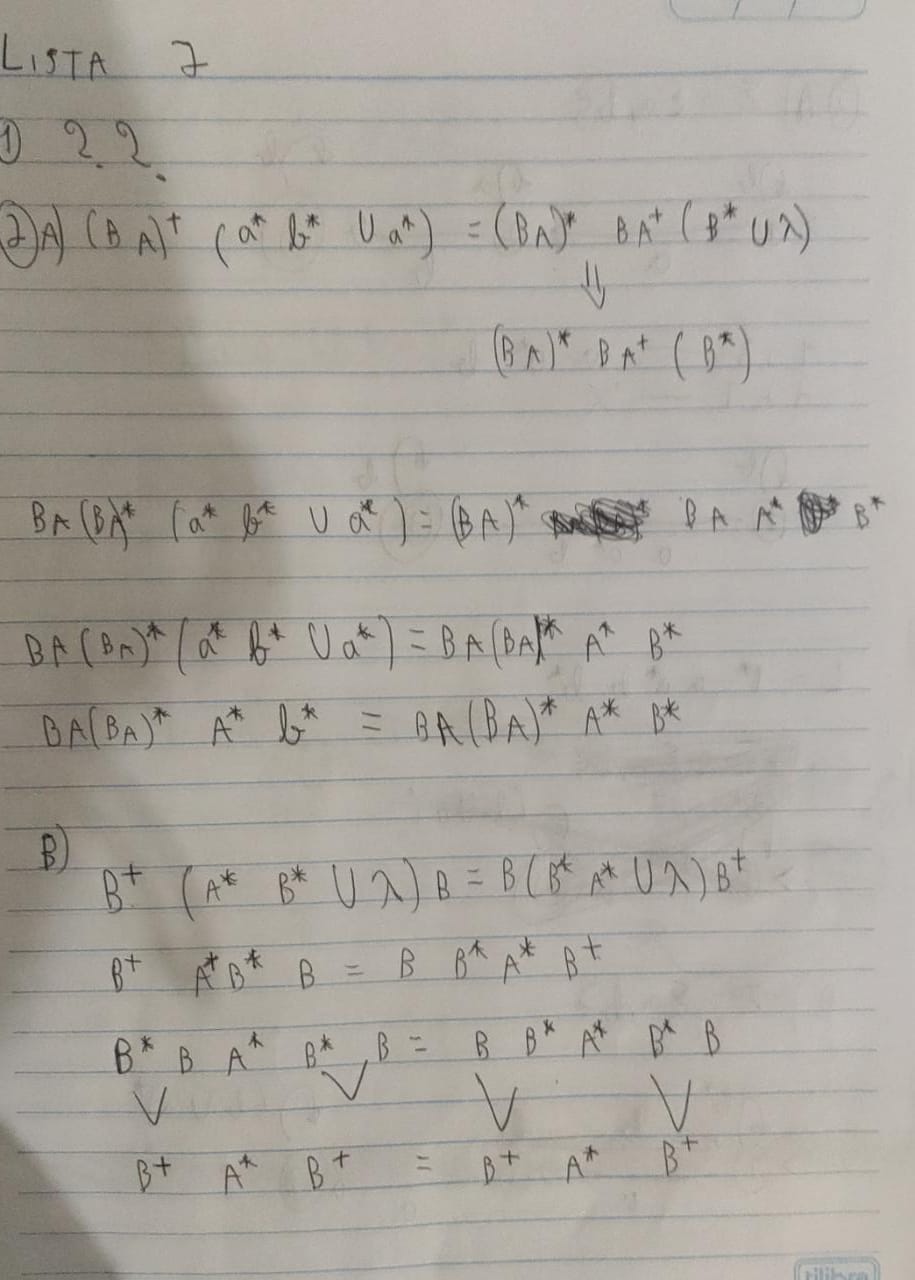 LISTA 7
1) 2.2.
2)A) (BA)+ (a* b* U a*) = (BA)* BA+ (B* U λ)
⇓
(BA)* BA+ (B*)
BA(BA)* (a* b* U a*) = (BA)* BA A* B*
BA(BA)* (a* b* U a*) = BA(BA)* A* B*
BA(BA)* A* b* = BA(BA)* A* B*
B)
B+ (A* B* U λ) B = B (B* A* U λ) B+
B+ A* B* B = B B* A* B+
B* B A* B* B = B B* A* B* B
B+ A* B+ = B+ A* B+